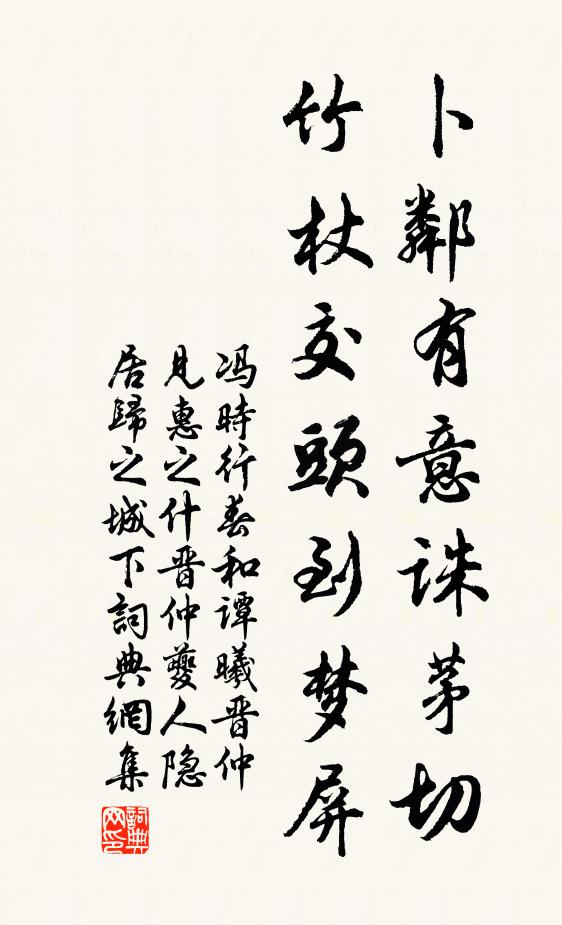 卜鄰有意誅茅切
竹杖交頭到梦屏
冯時行奉和谭曦晋仲
見惠之什晋仲夔人隐
居歸之城下詞典網集
詞典
网印